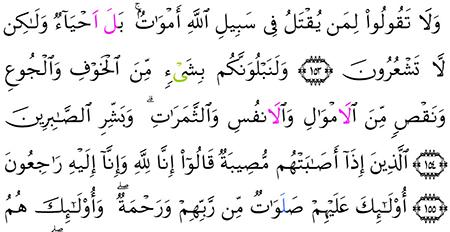 وَلَا تَقُولُواْ لِمَن يُقْتَلُ فِى سَبِيلِ ٱللَّهِ أَمْوَٰتٌۢ ۚ بَلَ اَحْيَآءٌ وَلَٰكِن
لَّا تَشْعُرُونَ ١٥٣ وَلَنَبْلُوَنَّكُم بِشَىْءٍ مِّنَ ٱلْخَوْفِ وَٱلْجُوعِ
وَنَقْصٍ مِّنَ ٱلَامْوَٰلِ وَٱلَانفُسِ وَٱلثَّمَرَٰتِ ۗ وَبَشِّرِ ٱلصَّٰبِرِينَ
١٥٤ ٱلَّذِينَ إِذَآ أَصَٰبَتْهُم مُّصِيبَةٌ قَالُوٓاْ إِنَّا لِلَّهِ وَإِنَّآ إِلَيْهِ رَٰجِعُونَ
١٥٥ أُوْلَٰٓئِكَ عَلَيْهِمْ صَلَوَٰتٌ مِّن رَّبِّهِمْ وَرَحْمَةٌ ۖ وَأُوْلَٰٓئِكَ هُمُ